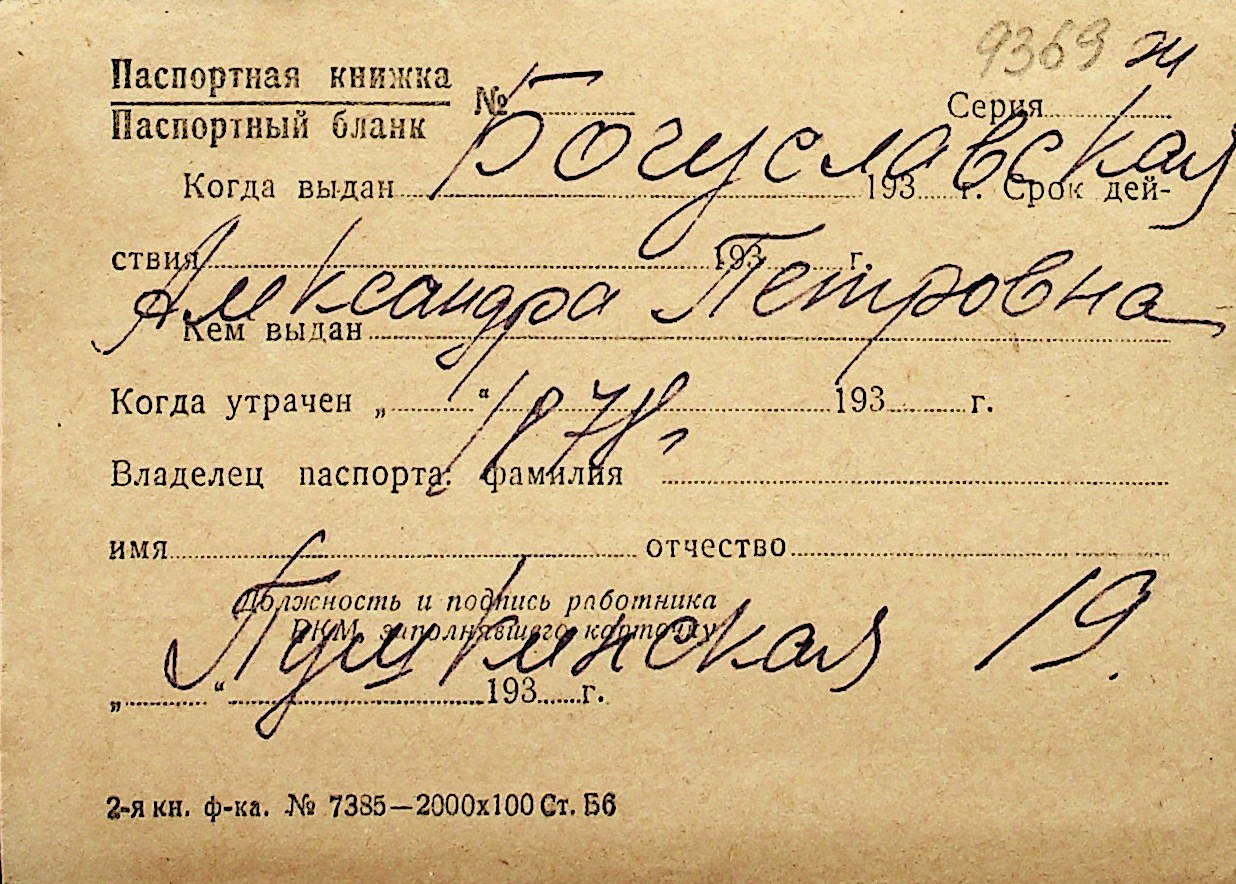 9369 ж
Паспортная книжка
Паспортный бланк
№ Серия
Богуславская
Когда выдан 193 г. Срок дей-
ствия 193 г.
Александра Петровна
Кем выдан
Когда утрачен „ “ 193 г.
1878 г
Владелец паспорта: фамилия
имя отчество
Должность и подпись работника
РКМ, заполнявшего карточку
Пушкинская 19.
„ “ 193 г.
2-я кн. ф-ка. № 7385—2000х100 Ст. Б6